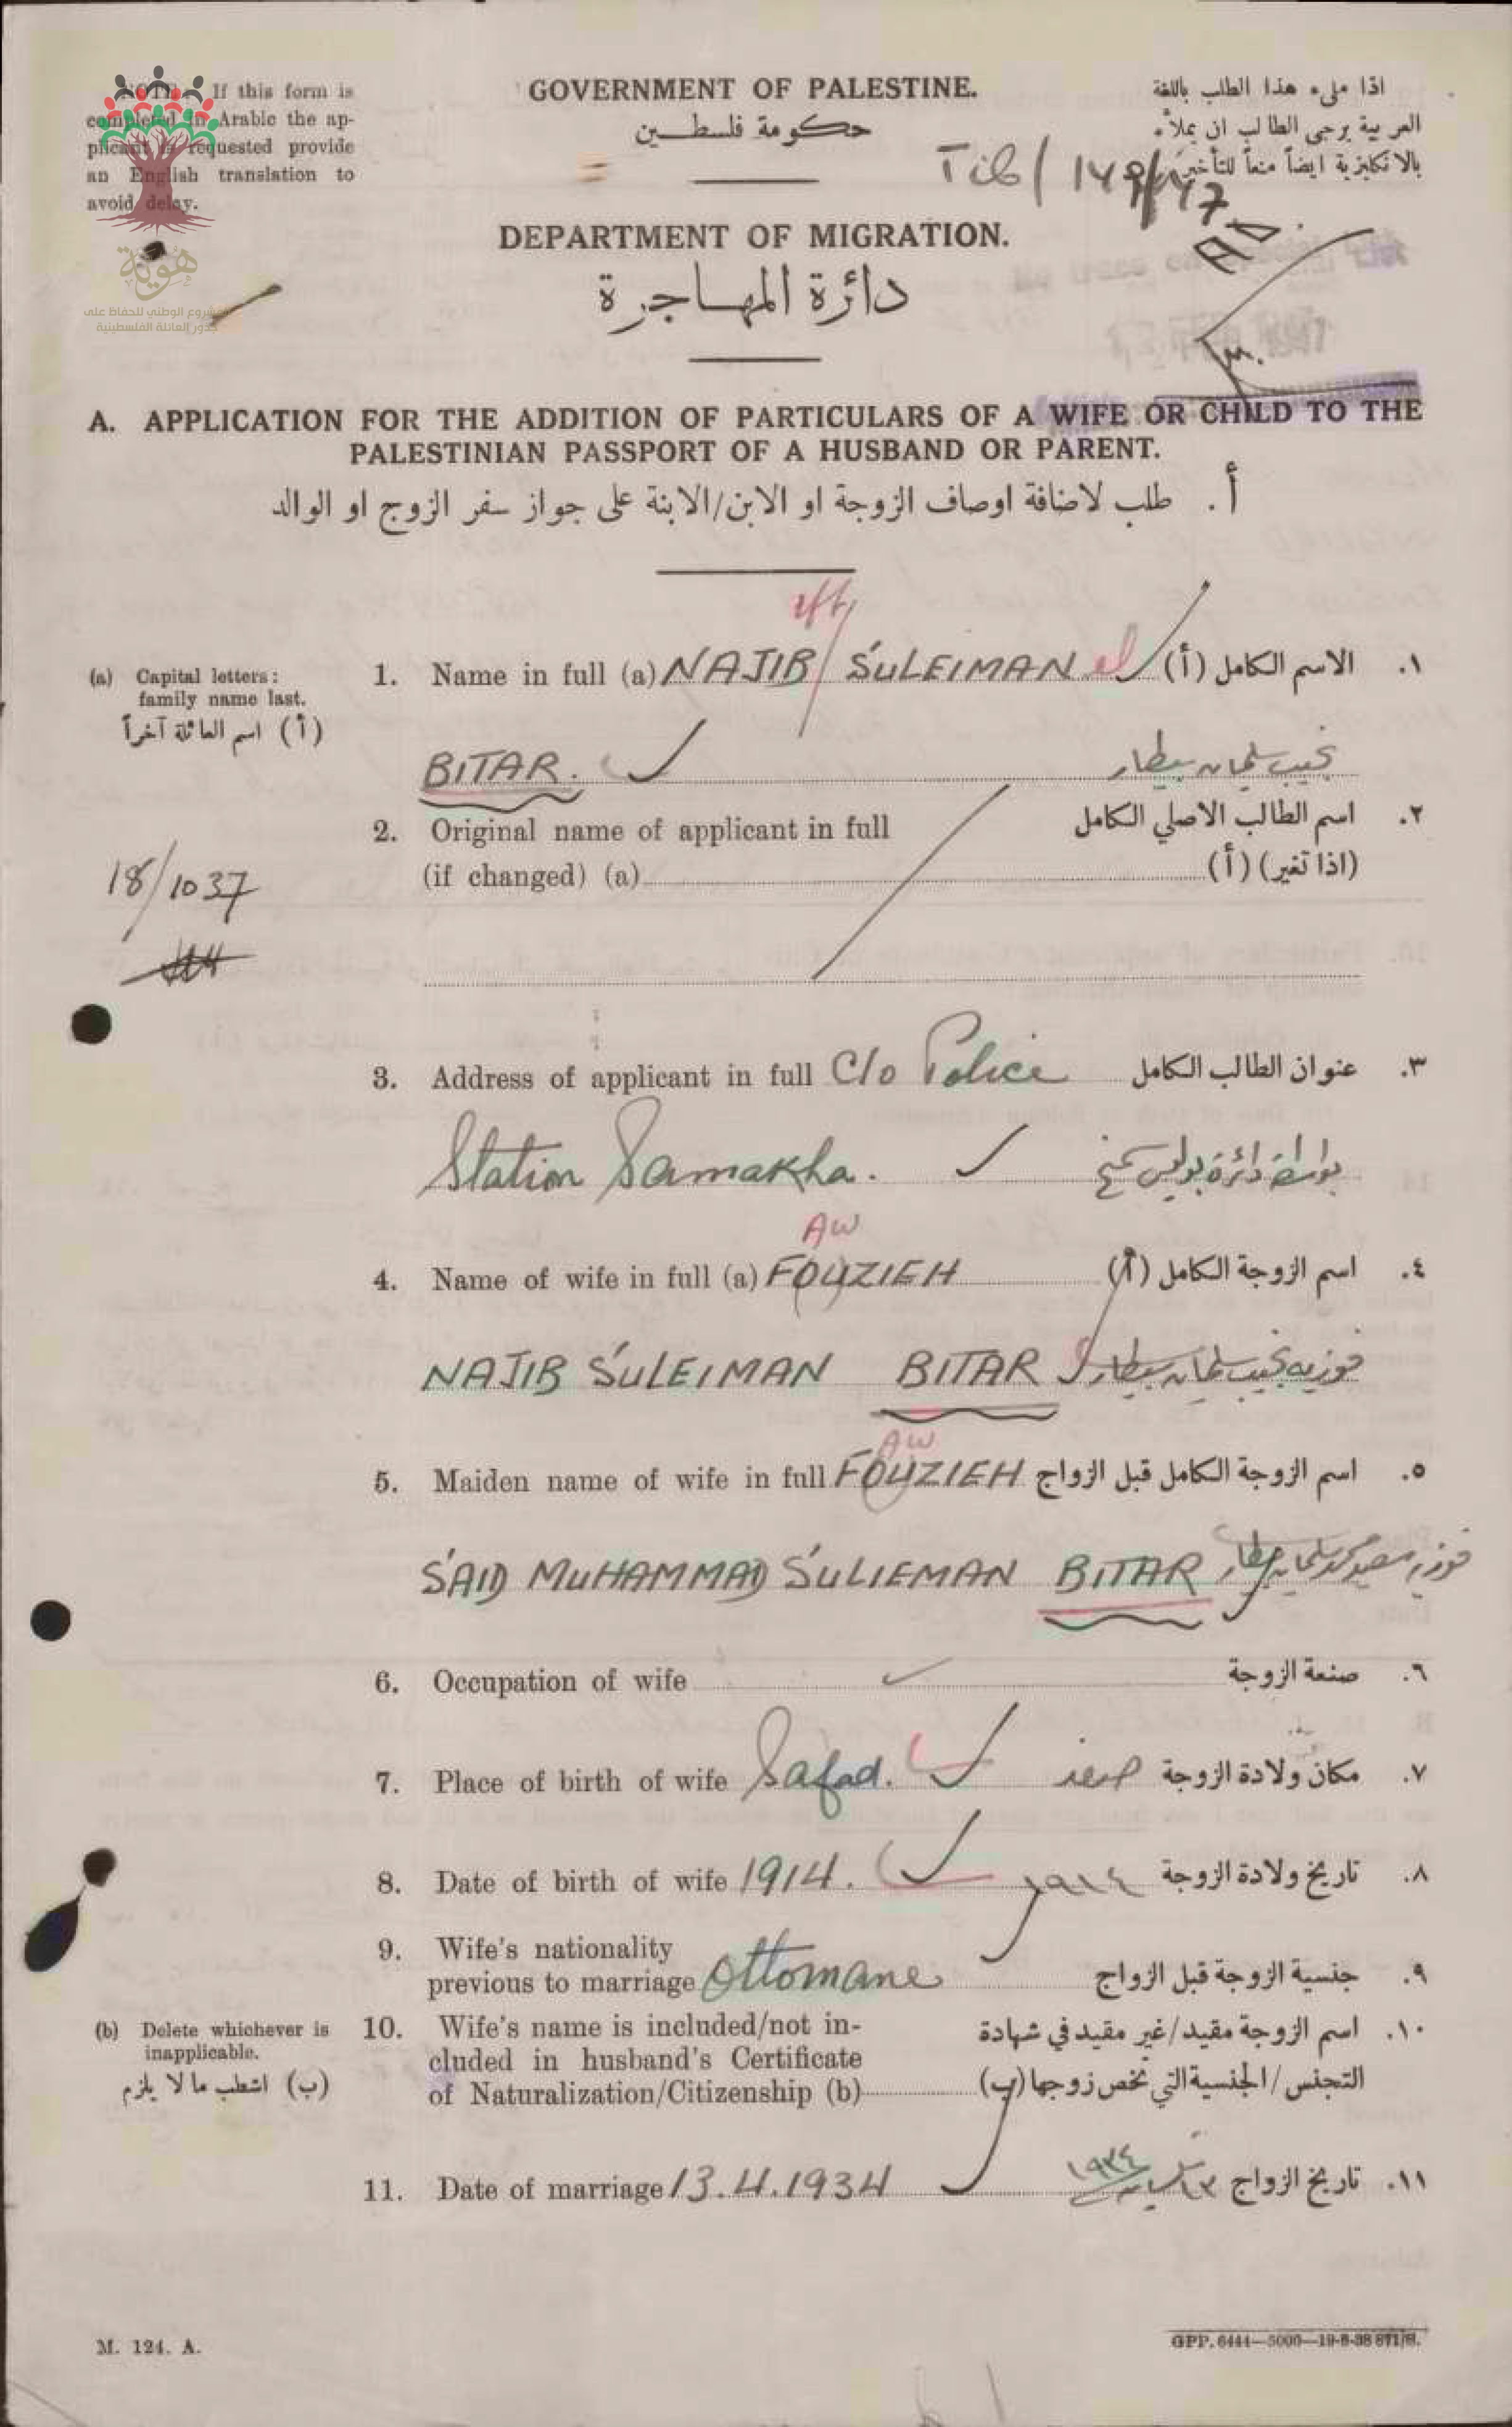 NOTE. If this form is
completed in Arabic the ap-
plicant is requested provide
an English translation to
avoid delay.
هوية
المشروع الوطني للحفاظ على
جذور العائلة الفلسطينية
GOVERNMENT OF PALESTINE.
حكومة فلسطين
اذا ملىء هذا الطلب باللغة
العربية يرجى الطالب ان يملأه
بالانكليزية ايضاً منعاً للتأخير
DEPARTMENT OF MIGRATION.
دائرة المهاجرة
A. APPLICATION FOR THE ADDITION OF PARTICULARS OF A WIFE OR CHILD TO THE
PALESTINIAN PASSPORT OF A HUSBAND OR PARENT.
أ. طلب لاضافة اوصاف الزوجة او الابن/الابنة على جواز سفر الزوج او الوالد
(a) Capital letters:
family name last.
(أ) اسم العائلة آخراً
1. Name in full (a) NAJIB SULEIMAN el الاسم الكامل (أ) ١.
BITAR. نجيب سليمان بيطار
2. Original name of applicant in full اسم الطالب الاصلي الكامل ٢.
(if changed) (a) (اذا تغير) (أ)
18/1037
3. Address of applicant in full C/o Police عنوان الطالب الكامل ٣.
Station Samakha. بواسطة دائرة بوليس سمخ
AW
4. Name of wife in full (a) FOUZIEH اسم الزوجة الكامل (أ) ٤.
NAJIB SULEIMAN BITAR فوزيه نجيب سليمان بيطار
AW
5. Maiden name of wife in full FOUZIEH اسم الزوجة الكامل قبل الزواج ٥.
SAID MUHAMMAD SULIEMAN BITAR فوزيه سعيد محمد سليمان بيطار
6. Occupation of wife صنعة الزوجة ٦.
7. Place of birth of wife Safad. صفد مكان ولادة الزوجة ٧.
8. Date of birth of wife 1914. ١٩١٤ تاريخ ولادة الزوجة ٨.
9. Wife's nationality
previous to marriage Ottomane جنسية الزوجة قبل الزواج ٩.
(b) Delete whichever is
inapplicable.
(ب) اشطب ما لا يلزم
10. Wife's name is included/not in- اسم الزوجة مقيد/غير مقيد في شهادة ١٠.
cluded in husband's Certificate
of Naturalization/Citizenship (b) التجنس/الجنسية التي تخص زوجها (ب)
11. Date of marriage 13.4.1934 تاريخ الزواج ١١.
M. 124. A.
GPP. 6444—5000—19-8-38 871/S.